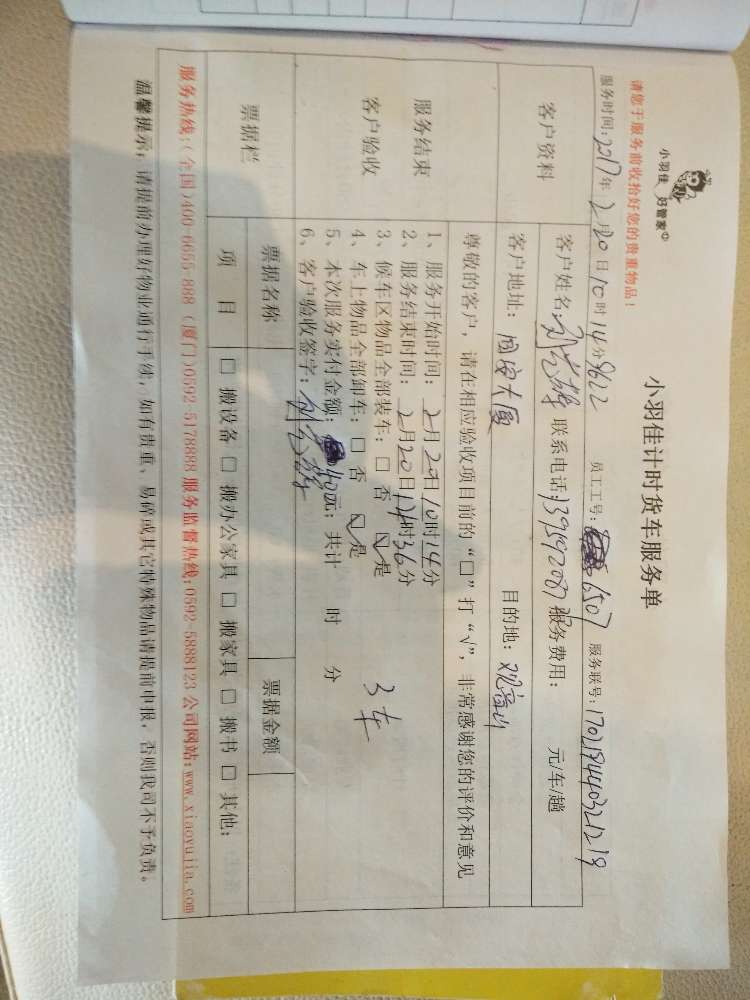 小羽佳 好管家
小羽佳计时货车服务单
请您于服务前收拾好您的贵重物品!
服务时间: 2017年2月20日10时14分 员工工号: 6507 服务联号: 170219440321219
客户资料
客户姓名: 联系电话: 服务费用: 元/车/趟
客户地址: 国安大厦 目的地: 观音山
服务结束
客户验收
尊敬的客户, 请在相应验收项目前的 “□” 打 “√”, 非常感谢您的评价和意见
1、服务开始时间: 2月20日10时14分
2、服务结束时间: 2月20日14时36分
3、候车区物品全部装车: □ 否 ☑ 是
4、车上物品全部卸车: □ 否 ☑ 是
3车
5、本次服务实付金额: 元; 共计 时 分
6、客户验收签字:
票据栏
票据名称 票据金额
项 目 □ 搬设备 □ 搬办公家具 □ 搬家具 □ 搬书 □ 其他:
服务热线:(全国)400-6655-888 (厦门)0592-5178888 服务监督热线:0592-5888123 公司网站:www.xiaoyujia.com
温馨提示: 请提前办理好物业通行手续, 如有贵重、易碎或其它特殊物品请提前申报, 否则我司不予负责。